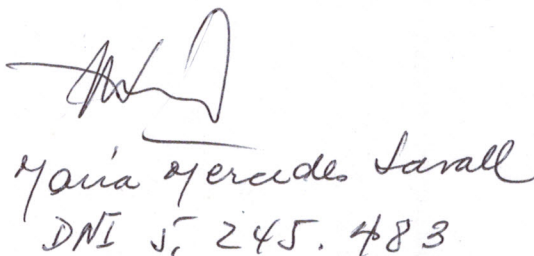 María Mercedes Lavall
DNI 5.245.483